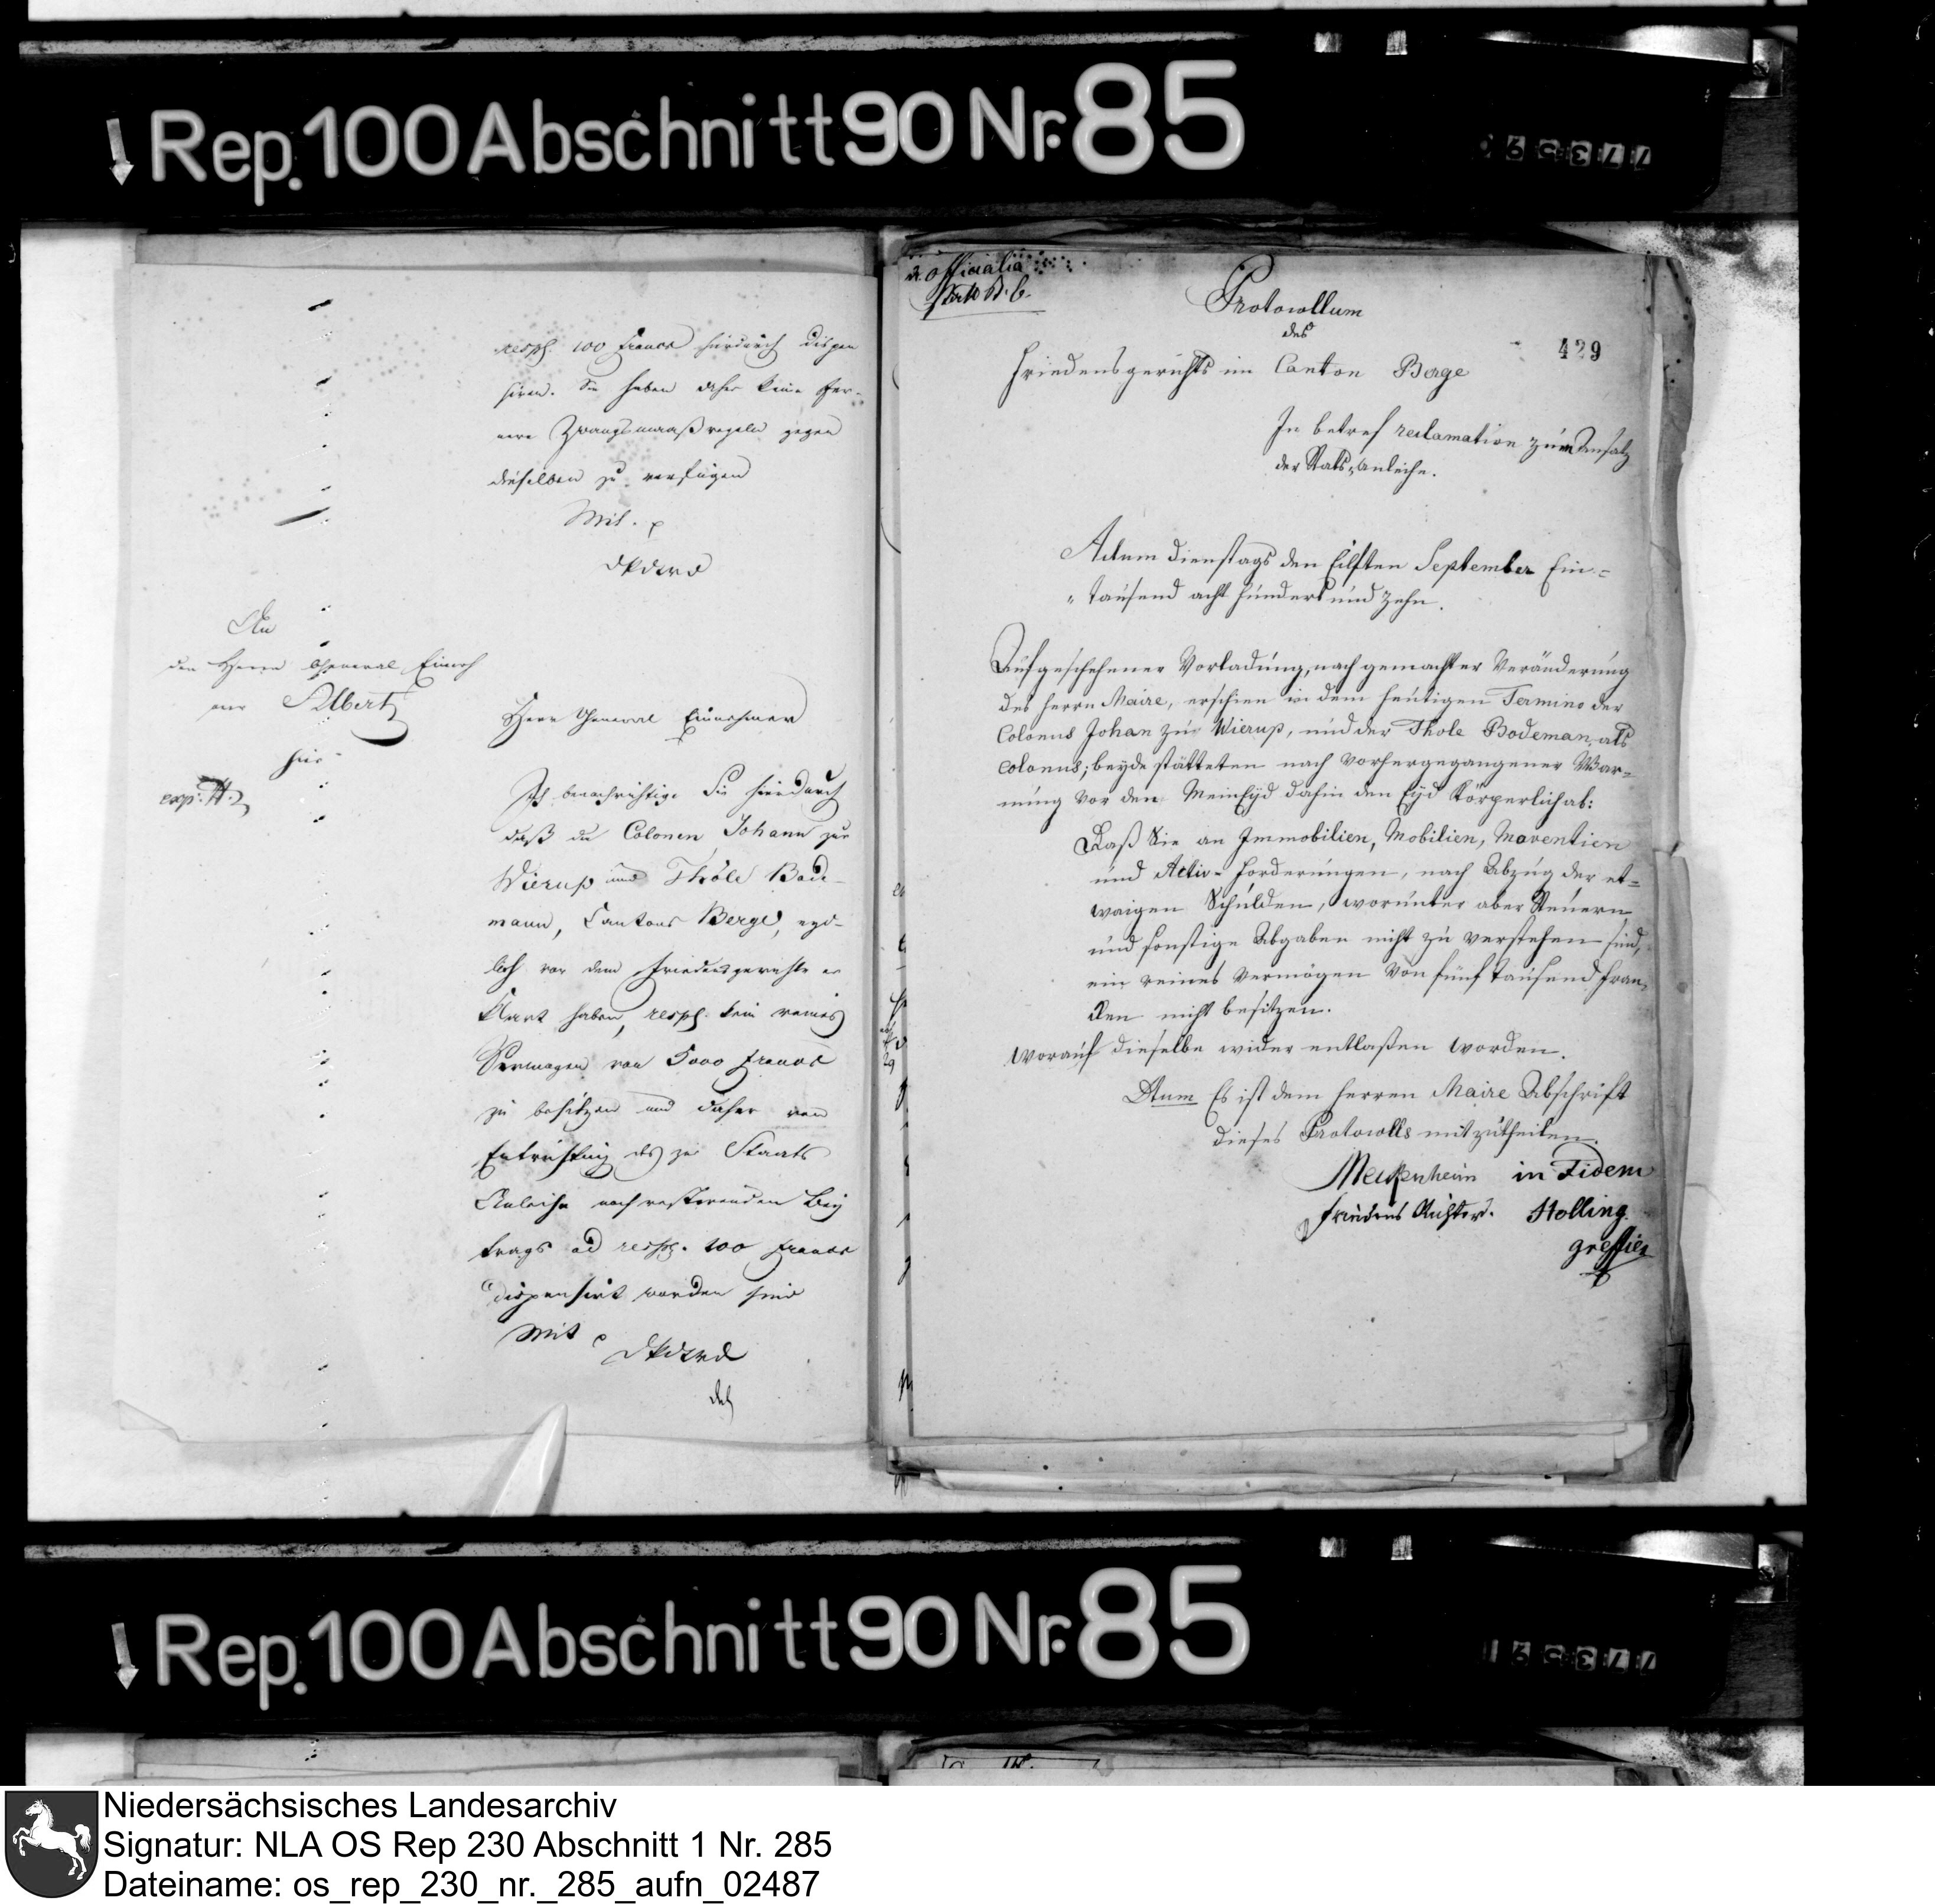 Rep. 100 Abschnitt 90 Nr. 85
resp. 100 Francs hierdurch dispen
siren. Sie haben daher keine fer-
nere Zwangsmaaßregeln gegen
dieselben zu verfügen
Mit.
An
den Herrn General Einneh
mer Albert
hier
exp.
Herr General Einnehmer
Ich benachrichtige Sie hierdurch
daß die Colonen Johann zur
Wierup und Thöle Bode-
mann, Cantons Berge, eyd-
lich vor dem Friedensgerichte er
klärt haben, resp. kein reines
Vermögen von 5000 Francs
zu besitzen und daher von
Entrichtung des zur Staats
Anleihe noch restirenden Bey
trags ad resp. 100 Francs
dispensirt worden sind
Mit
Officialia
Protocollum
des
429
Friedensgerichts im Canton Berge
In betref reclamation zum Ansatz
der Stats-Anleihe.
Actum Dienstags den Eilften September Ein-
tausend acht hundert und zehn.
Auf geschehener Vorladung, nach gemachter Veränderung
des Herrn Maire, erschien in dem heutigen Termino der
Colonus Johan zur Wierup, und der Thole Bodeman, als
colonus; beyde stätteten nach vorhergegangener War-
nung vor den Meineyd dahin den Eyd Körperlich ab:
Daß Sie an Immobilien, Mobilien, Moventien
und Activ-Forderungen, nach Abzug der et-
waigen Schulden, worunter aber Steuern
und sonstige Abgaben nicht zu verstehen sind,
ein reines Vermögen von fünf tausend Fran-
ken nicht besitzen.
Worauf dieselbe wider entlaßen worden.
Dtum Es ist dem Herren Maire Abschrift
dieses Protocolls mitzutheilen.
in Fidem
Friedens Richter. Stolling
greffier
Rep. 100 Abschnitt 90 Nr. 85
Niedersächsisches Landesarchiv
Signatur: NLA OS Rep 230 Abschnitt 1 Nr. 285
Dateiname: os_rep_230_nr._285_aufn_02487